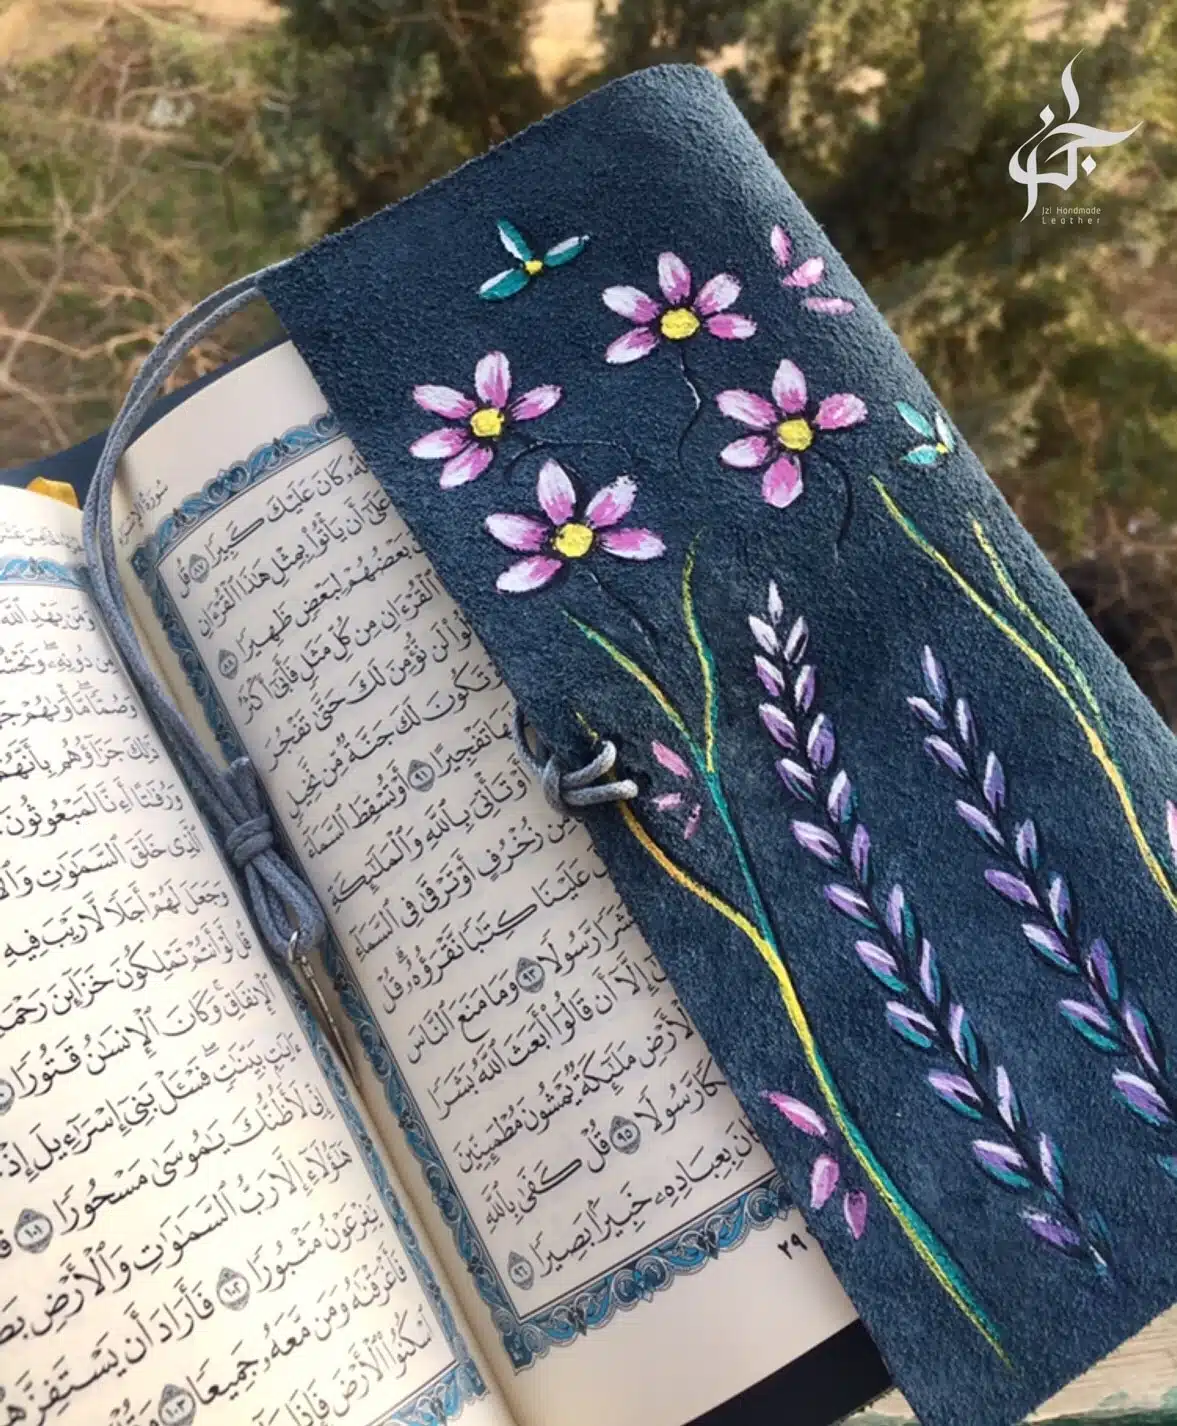 سُورَةُ الإِسْرَاءِ
كَانَ عَلَيْكَ كَبِيرًا ٨٧ قُل
عَلَىٰٓ أَن يَأْتُوا۟ بِمِثْلِ هَٰذَا ٱلْقُرْءَانِ
بَعْضُهُمْ لِبَعْضٍ ظَهِيرًا ٨٨
ٱلْقُرْءَانِ مِن كُلِّ مَثَلٍ فَأَبَىٰٓ أَكْثَرُ
لَن نُّؤْمِنَ لَكَ حَتَّىٰ تَفْجُرَ
تَكُونَ لَكَ جَنَّةٌ مِّن نَّخِيلٍ
تَفْجِيرًا ٩١ أَوْ تُسْقِطَ ٱلسَّمَآءَ
أَوْ تَأْتِىَ بِٱللَّهِ وَٱلْمَلَٰٓئِكَةِ
مِّن زُخْرُفٍ أَوْ تَرْقَىٰ فِى ٱلسَّمَآءِ
عَلَيْنَا كِتَٰبًا نَّقْرَؤُهُۥ قُلْ
رَّسُولًا ٩٣ وَمَا مَنَعَ ٱلنَّاسَ
إِلَّآ أَن قَالُوٓا۟ أَبَعَثَ ٱللَّهُ بَشَرًا
ٱلْأَرْضِ مَلَٰٓئِكَةٌ يَمْشُونَ مُطْمَئِنِّينَ
رَّسُولًا ٩٥ قُلْ كَفَىٰ بِٱللَّهِ
بِعِبَادِهِۦ خَبِيرًۢا بَصِيرًا ٩٦
٢٩
وَمَن يَهْدِ ٱللَّهُ
مِن دُونِهِۦ وَنَحْشُ
وَصُمًّا مَّأْوَىٰهُمْ جَهَ
ذَٰلِكَ جَزَآؤُهُم بِأَنَّهُمْ
وَرُفَٰتًا أَءِنَّا لَمَبْعُوثُونَ
ٱلَّذِى خَلَقَ ٱلسَّمَٰوَٰتِ وَٱلْأَ
وَجَعَلَ لَهُمْ أَجَلًا لَّا رَيْبَ فِيهِ
قُل لَّوْ أَنتُمْ تَمْلِكُونَ خَزَآئِنَ رَحْمَةِ
ٱلْإِنفَاقِ وَكَانَ ٱلْإِنسَٰنُ قَتُورًا
ءَايَٰتٍۭ بَيِّنَٰتٍ فَسْـَٔلْ بَنِىٓ إِسْرَٰٓءِيلَ إِذْ
إِنِّى لَأَظُنُّكَ يَٰمُوسَىٰ مَسْحُورًا ١٠١
هَٰٓؤُلَآءِ إِلَّا رَبُّ ٱلسَّمَٰوَٰتِ وَٱلْأَرْضِ
يَٰفِرْعَوْنُ مَثْبُورًا ١٠٢ فَأَرَادَ أَن يَسْتَفِزَّهُ
فَأَغْرَقْنَٰهُ وَمَن مَّعَهُۥ جَمِيعًا ١٠٣
ٱسْكُنُوا۟ ٱلْأَرْضَ فَإِذَا
Jzl Handmade
Leather